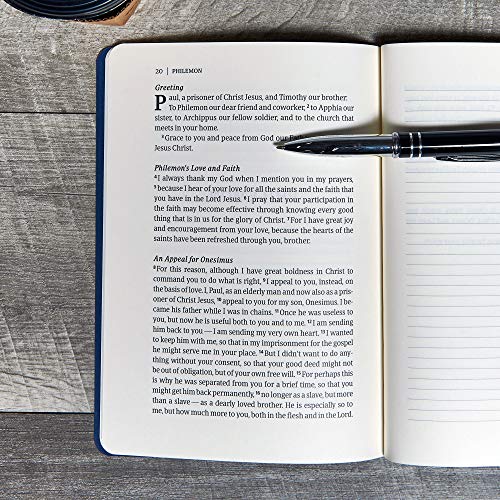 20 | PHILEMON
Greeting
Paul, a prisoner of Christ Jesus, and Timothy our brother.
To Philemon our dear friend and coworker, ² to Apphia our
sister, to Archippus our fellow soldier, and to the church that
meets in your home.
³ Grace to you and peace from God our
Jesus Christ.
Philemon's Love and Faith
⁴ I always thank my God when I mention you in my prayers,
⁵ because I hear of your love for all the saints and the faith that
you have in the Lord Jesus. ⁶ I pray that your participation in
the faith may become effective through knowing every good
thing that is in us for the glory of Christ. ⁷ For I have great joy
and encouragement from your love, because the hearts of the
saints have been refreshed through you, brother.
An Appeal for Onesimus
⁸ For this reason, although I have great boldness in Christ to
command you to do what is right, ⁹ I appeal to you, instead, on
the basis of love. I, Paul, as an elderly man and now also as a pris-
oner of Christ Jesus, ¹⁰ appeal to you for my son, Onesimus. I be-
came his father while I was in chains. ¹¹ Once he was useless to
you, but now he is useful both to you and to me. ¹² I am sending
him back to you — I am sending my very own heart. ¹³ I wanted
to keep him with me, so that in my imprisonment for the gospel
he might serve me in your place. ¹⁴ But I didn't want to do any-
thing without your consent, so that your good deed might not
be out of obligation, but of your own free will. ¹⁵ For perhaps this
is why he was separated from you for a brief time, so that you
might get him back permanently, ¹⁶ no longer as a slave, but more
than a slave — as a dearly loved brother. He is especially so to
me, but how much more to you, both in the flesh and in the Lord.